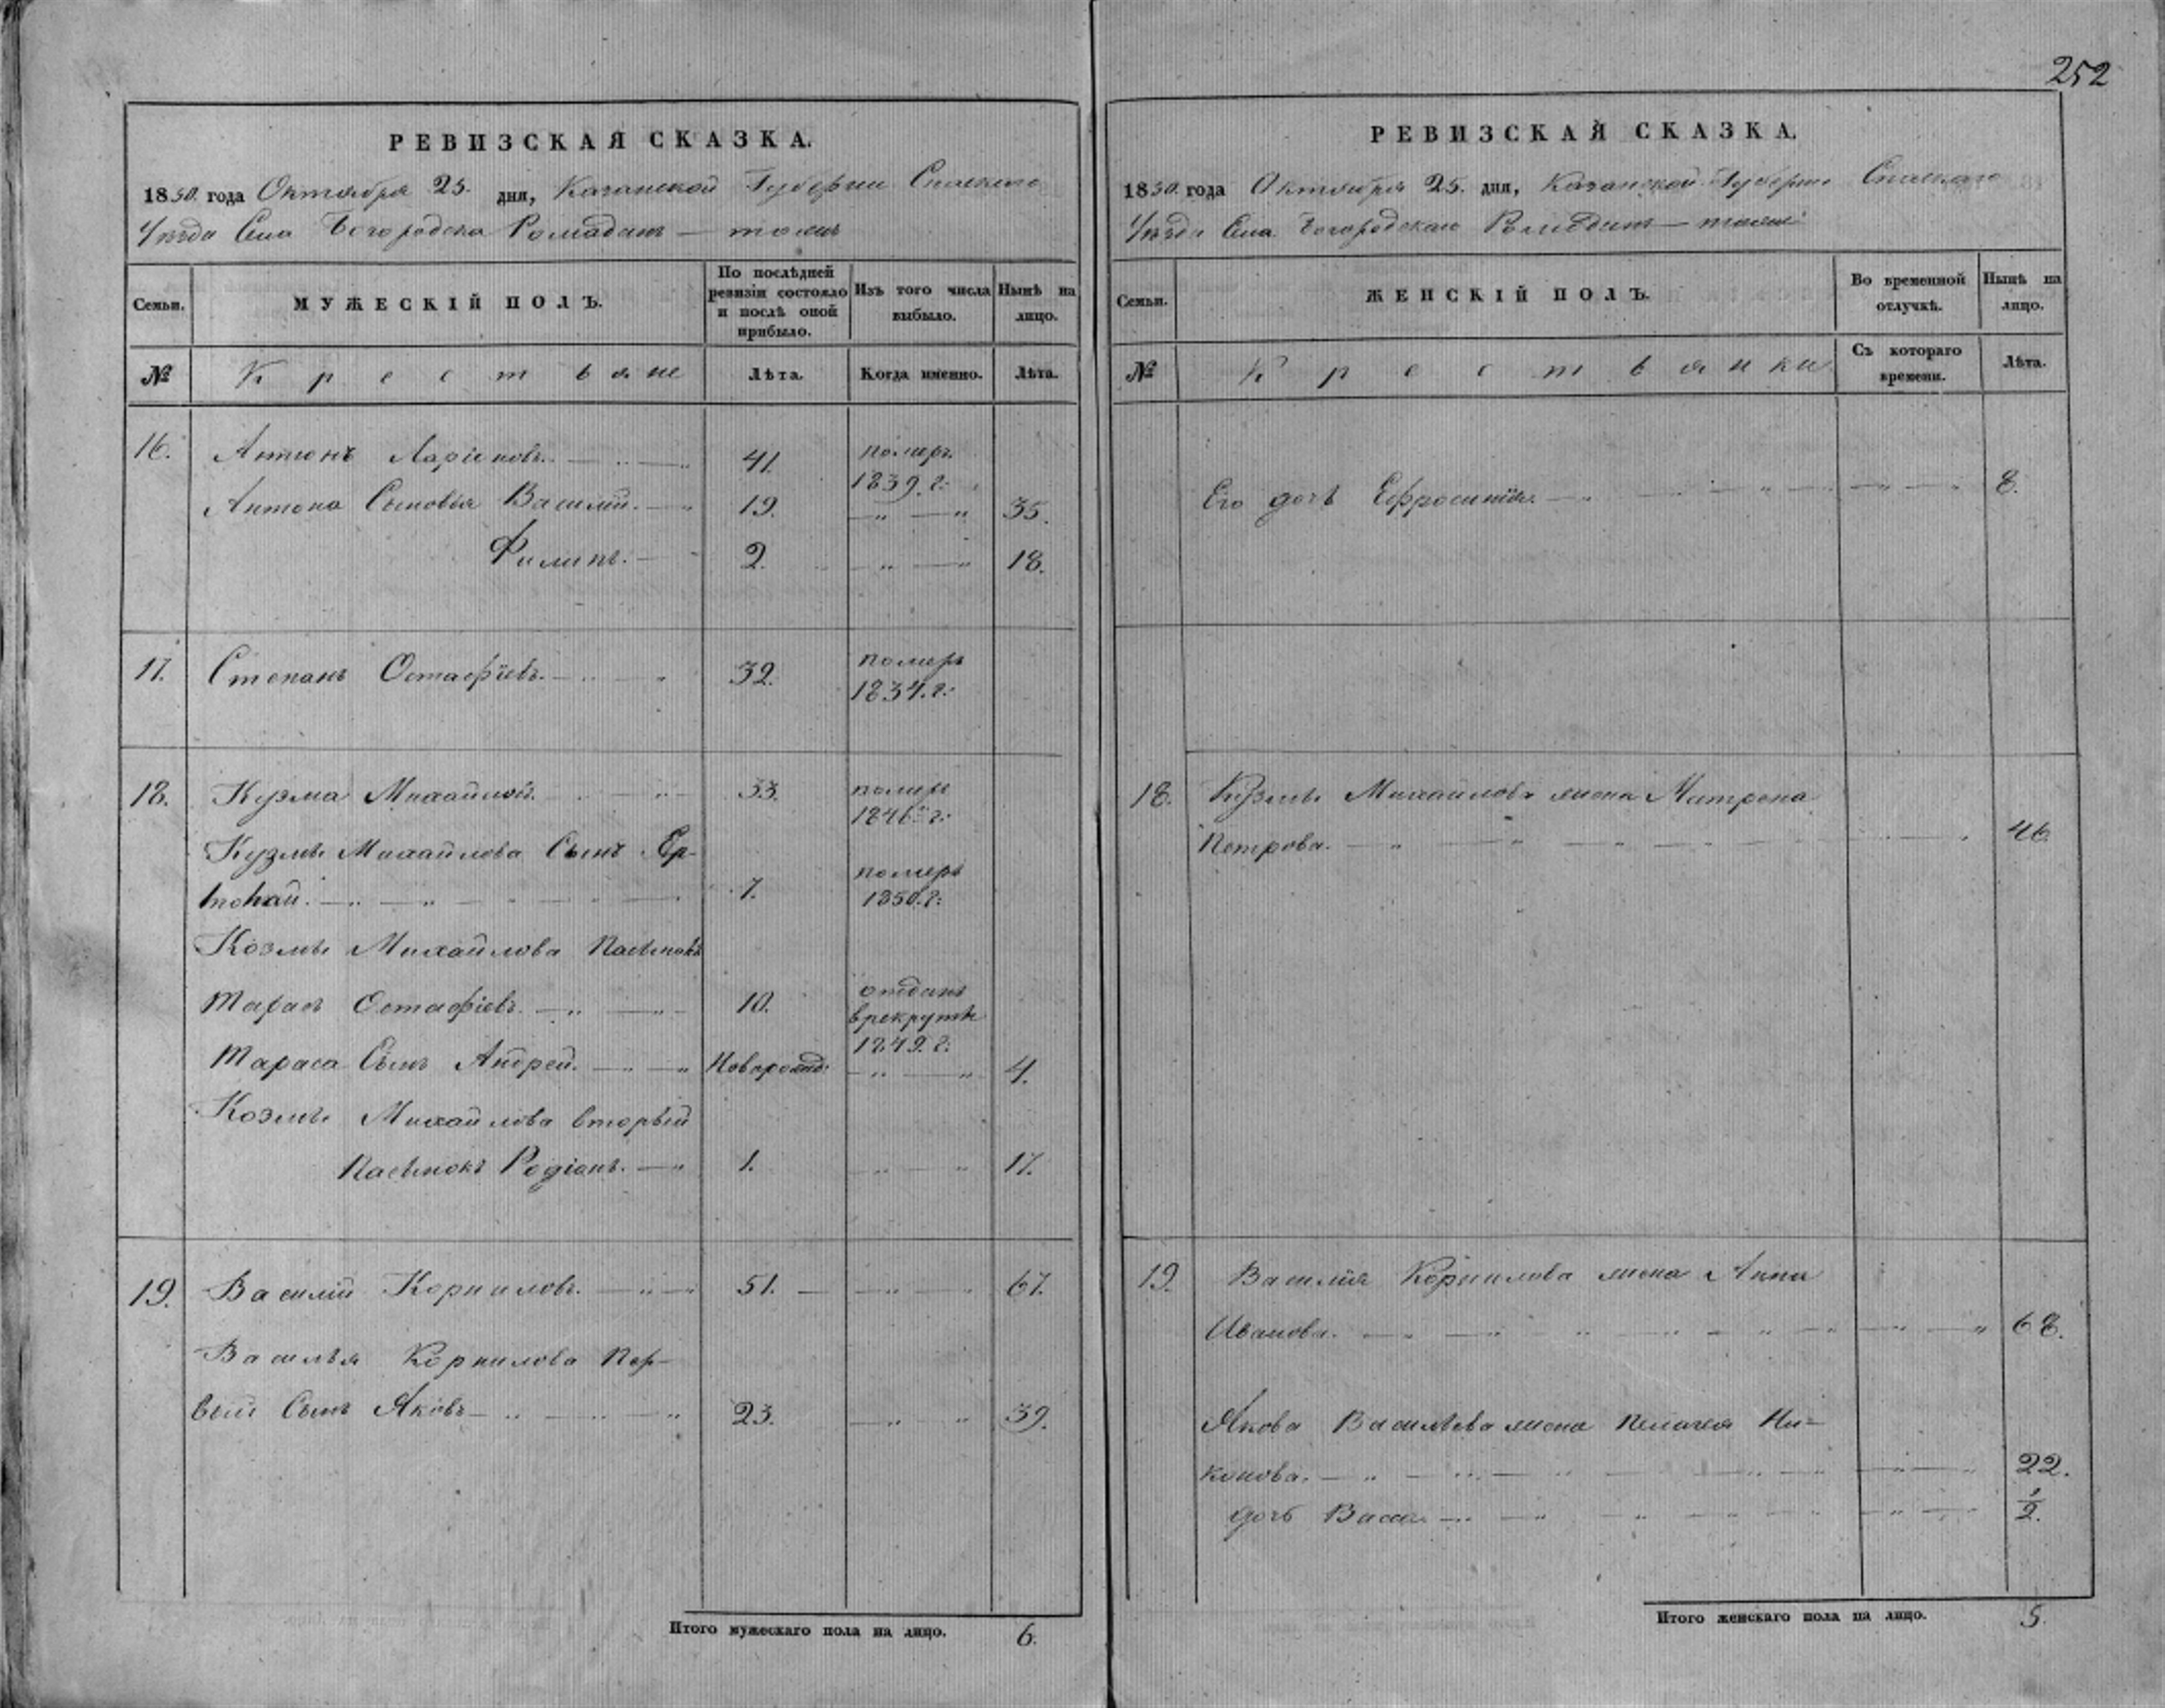 252
РЕВИЗСКАЯ СКАЗКА.
1850. года Октября 25. дня, Казанской Губернии Спаскаго
Уѣзда Села Богородска Ромадан —
Семьи.
МУЖЕСКІЙ ПОЛЪ.
По послѣдней ревизіи состояло и послѣ оной прибыло.
Изъ того числа выбыло.
Нынѣ на лицо.
№
Крестьяне
Лѣта.
Когда именно.
Лѣта.
16. Антонъ Ларіоновъ. 41. померъ 1839. г:
Антона Сыновья Василій. 19. 35.
Филипъ. 2. 18.
17. Степанъ Остафіевъ. 32. померъ 1834. г:
18. Кузма Михайлов. 33. померъ 1846 г:
Кузмы Михайлова Сынъ Ер-
7. померъ 1850. г:
Козмы Михайлова Пасынокъ
Тарасъ Остафіевъ. 10. отданъ врекруты 1849. г:
Тараса Сынъ Андрей. Новорожд: 4.
Козмы Михайлова вторый
Пасынокъ Родіонъ. 1. 17.
19. Василій Корниловъ. 51. 67.
Василья Корнилова Пер-
вый Сынъ Яковъ 23. 39.
Итого мужескаго пола на лицо. 6.
РЕВИЗСКАЯ СКАЗКА.
1850. года Октября 25. дня, Казанской Губерніи Спаскаго
Уѣзда Села Богородскаго —
Семьи.
ЖЕНСКІЙ ПОЛЪ.
Во временной отлучкѣ.
Нынѣ на лицо.
№
Крестьянки
Съ котораго времени.
Лѣта.
Его дочь Ефросинія. 8.
18. Кузмы Михайлова жена Матрона
Петрова. 46.
19. Василія Корнилова жена Анна
Иванова. 68.
Якова Васильева жена Пелагея Ни-
конова. 22.
дочь Васса. 1/2.
Итого женскаго пола на лицо. 5.